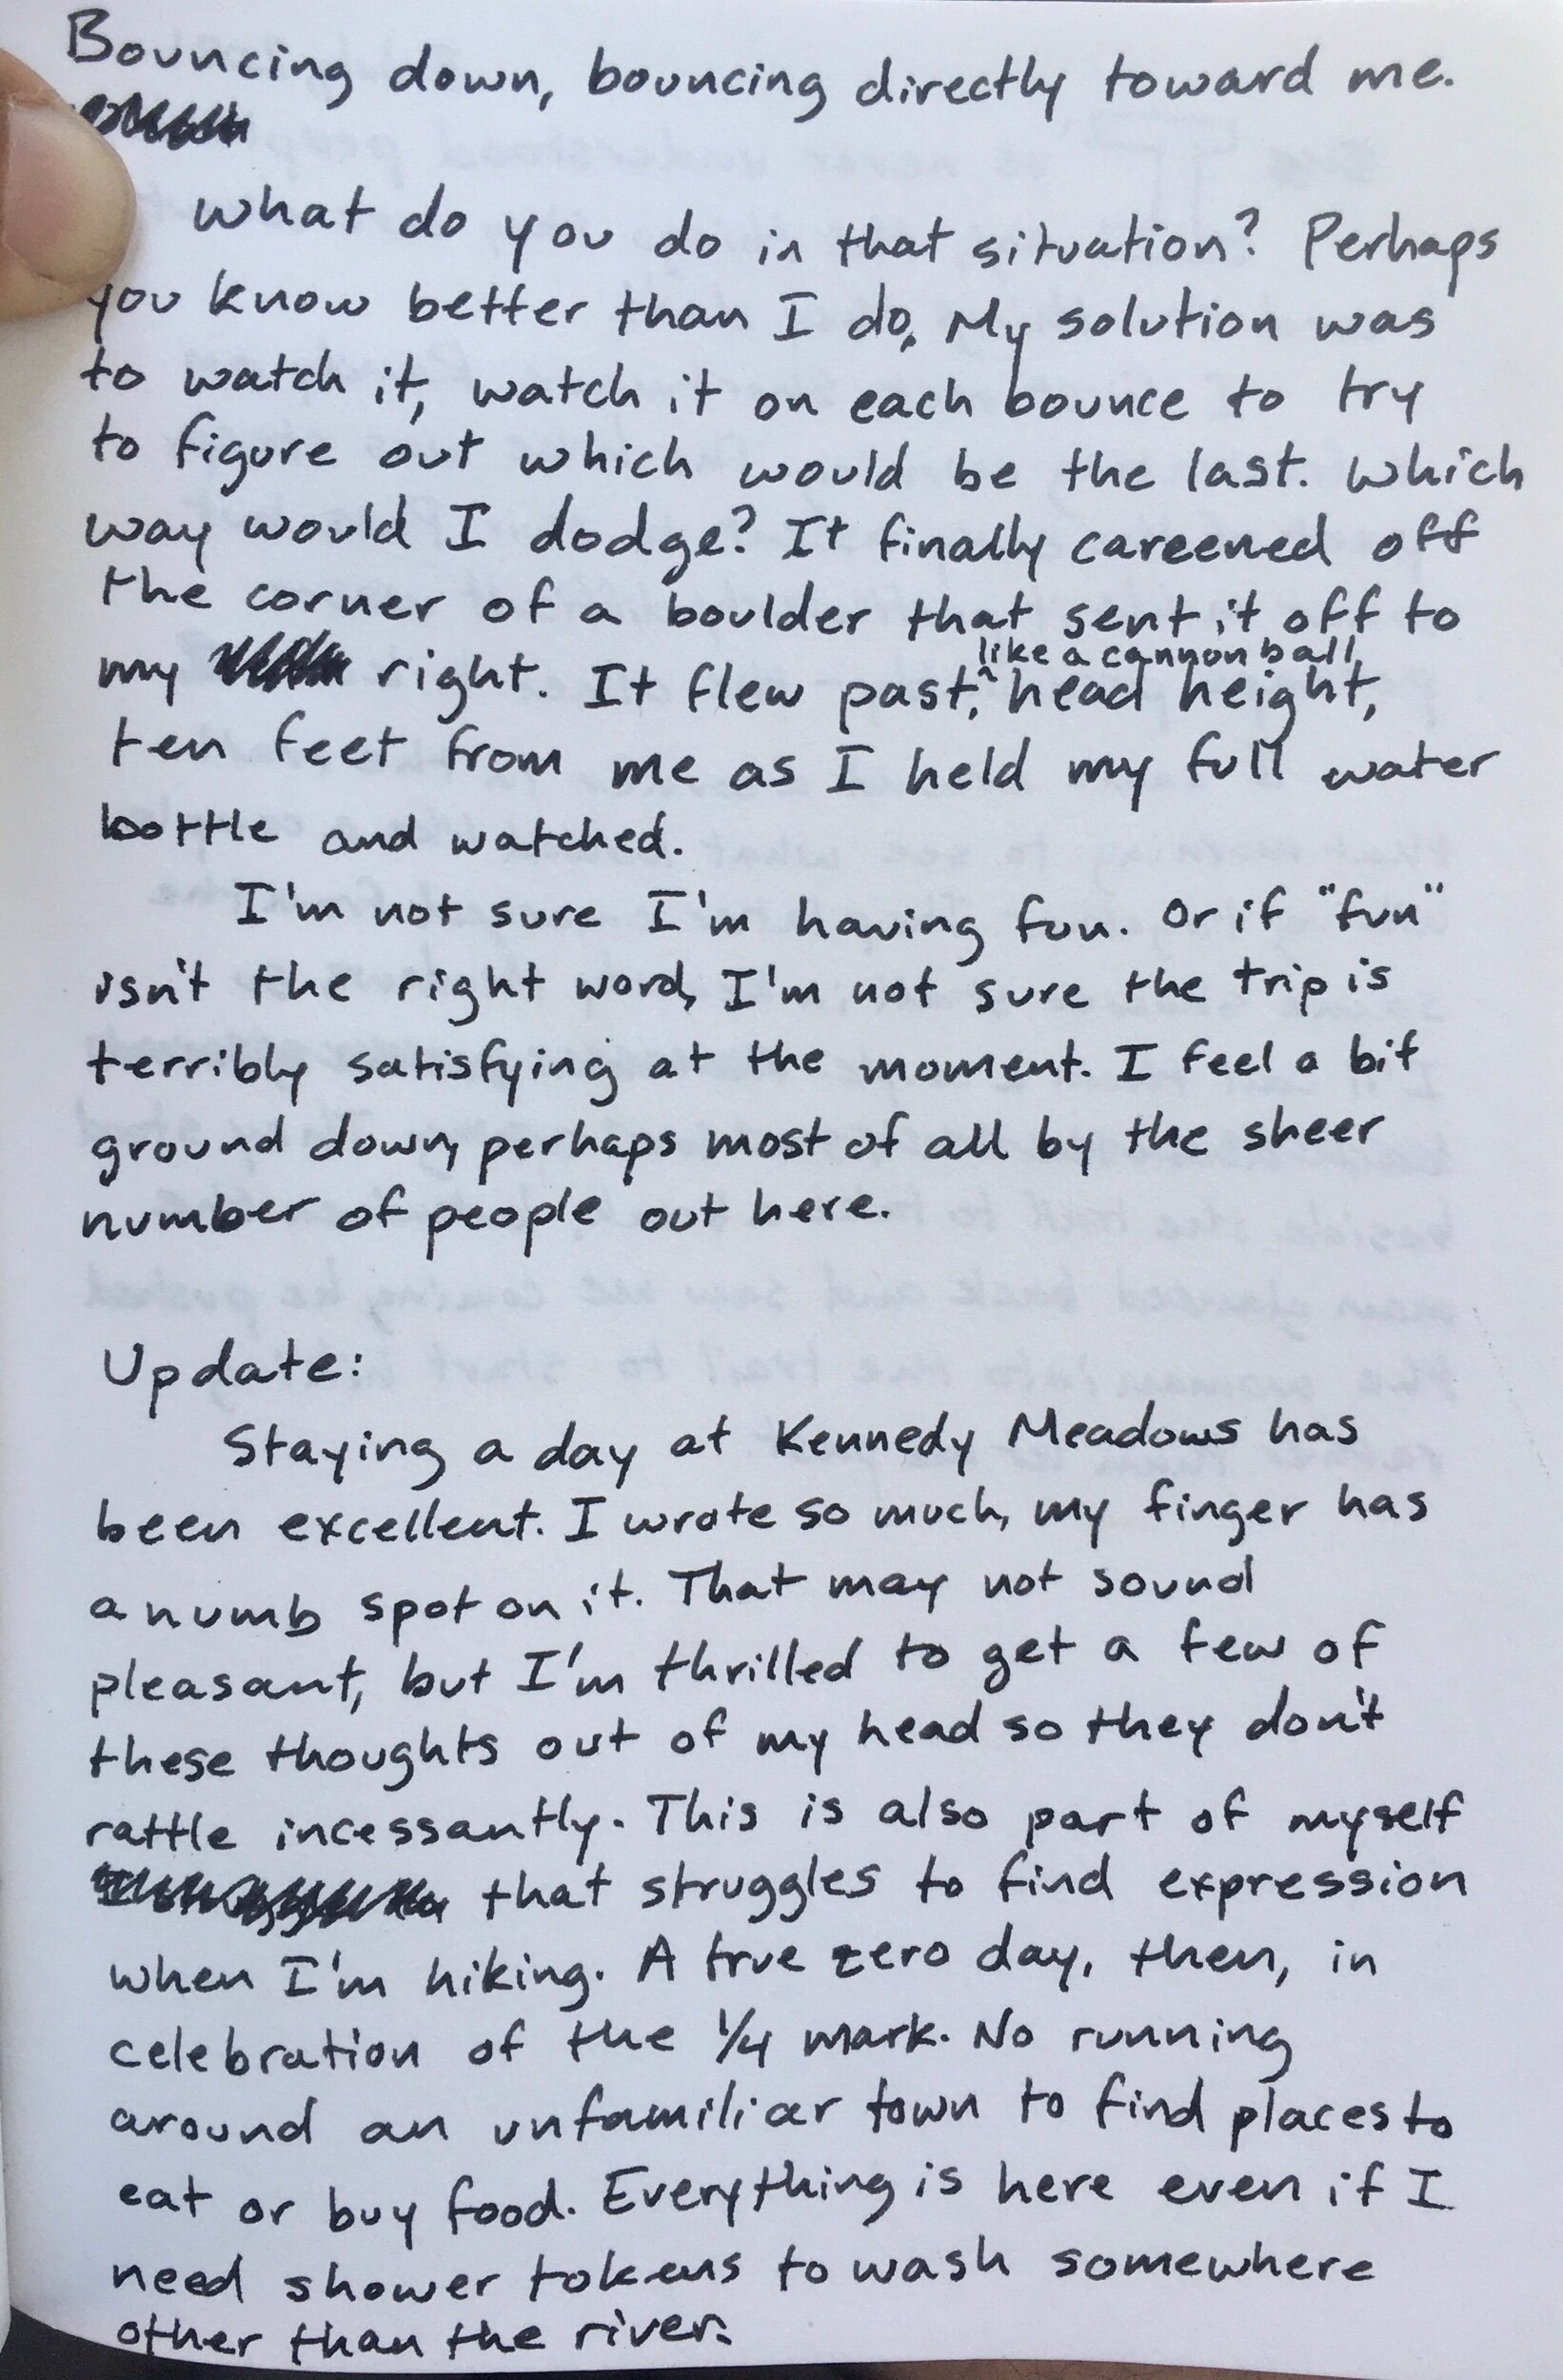 Bouncing down, bouncing directly toward me.
What do you do in that situation? Perhaps
you know better than I do. My solution was
to watch it, watch it on each bounce to try
to figure out which would be the last. Which
way would I dodge? It finally careened off
the corner of a boulder that sent it off to
like a cannon ball
my right. It flew past, ^ head height,
ten feet from me as I held my full water
bottle and watched.
I'm not sure I'm having fun. Or if "fun"
isn't the right word, I'm not sure the trip is
terribly satisfying at the moment. I feel a bit
ground down, perhaps most of all by the sheer
number of people out here.
Update:
Staying a day at Kennedy Meadows has
been excellent. I wrote so much, my finger has
a numb spot on it. That may not sound
pleasant, but I'm thrilled to get a few of
these thoughts out of my head so they don't
rattle incessantly. This is also part of myself
that struggles to find expression
when I'm hiking. A true zero day, then, in
celebration of the 1/4 mark. No running
around an unfamiliar town to find places to
eat or buy food. Everything is here even if I
need shower tokens to wash somewhere
other than the river.